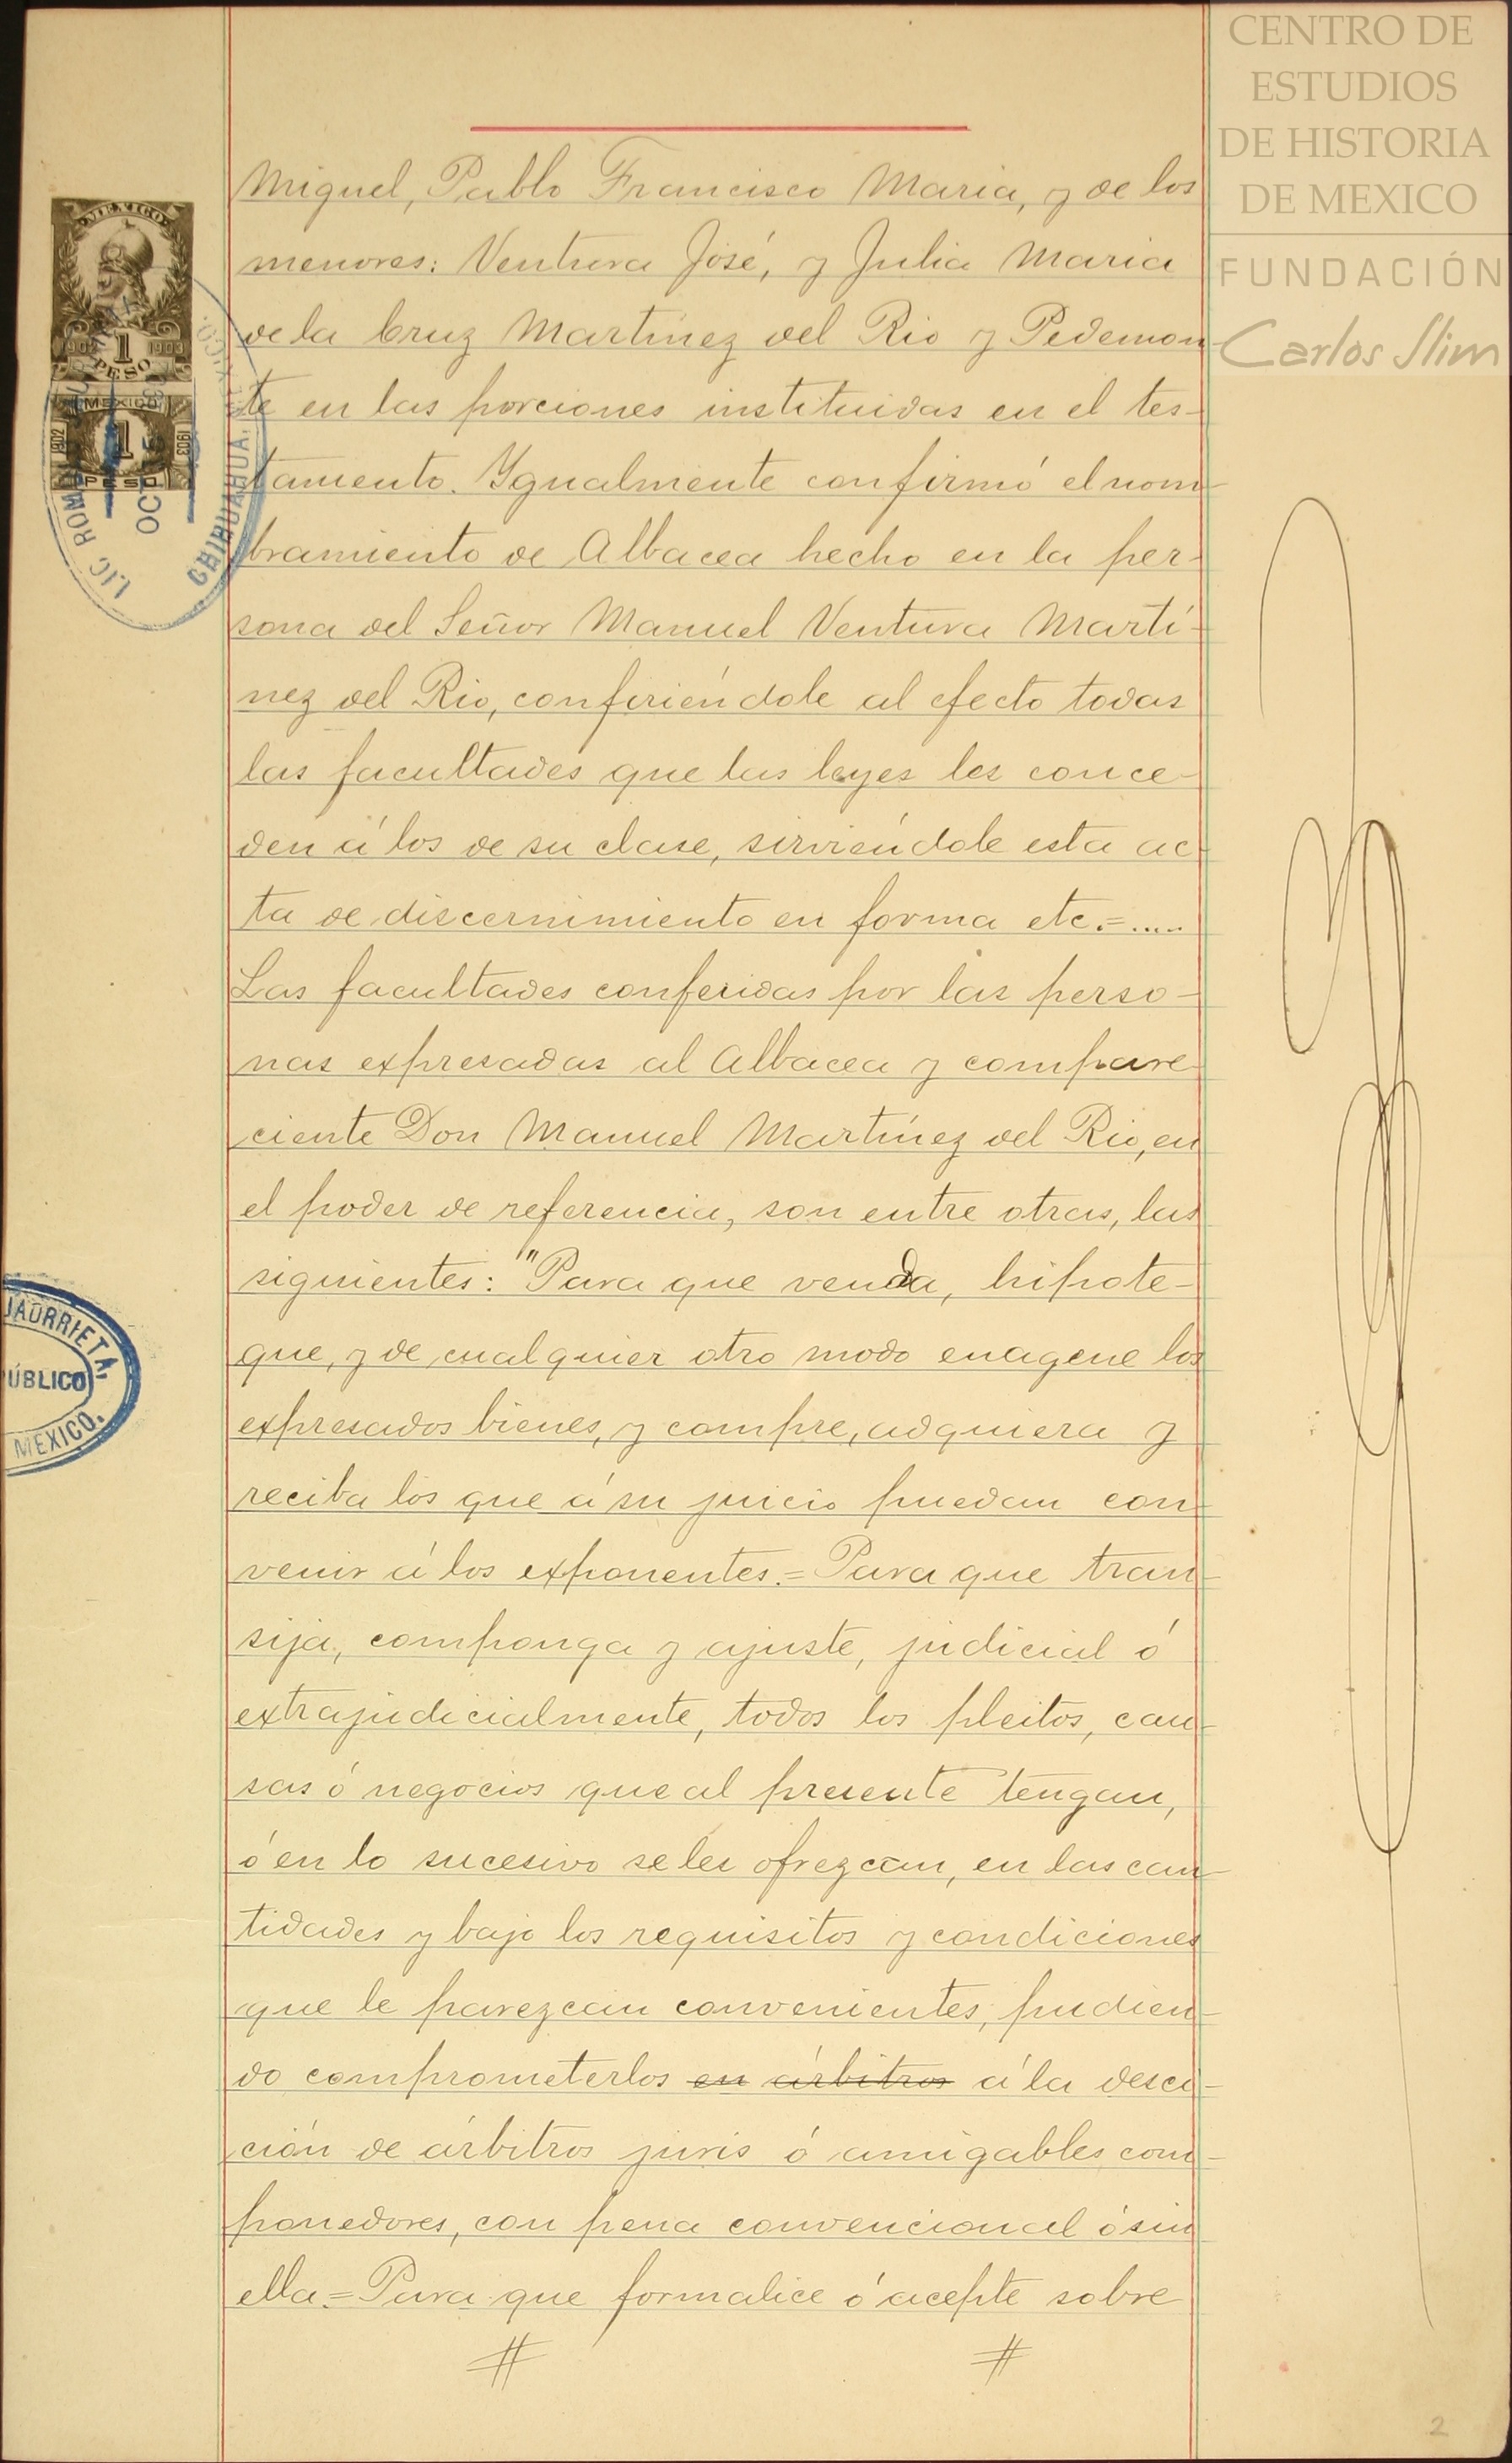 CENTRO DE
ESTUDIOS
DE HISTORIA
DE MEXICO
FUNDACIÓN
Carlos Slim
Miguel, Pablo Francisco Maria, y de los
menores: Ventura José, y Julia Maria
de la Cruz Martínez del Rio y Pedemon
te en las porciones instituidas en el tes-
tamento. Ygualmente confirmó el nom-
bramiento de Albacea hecho en la per-
sona del Señor Manuel Ventura Martí-
nez del Rio, confiriéndole al efecto todas
las facultades que las leyes les conce-
den á los de su clase, sirviéndole esta ac-
ta de discernimiento en forma etc.=.....
Las facultades conferidas por las perso-
nas expresadas al Albacea y compare-
ciente Don Manuel Martínez del Rio, en
el poder de referencia, son entre otras, las
siguientes: "Para que venda, hipote-
que, y de cualquier otro modo enagene los
expresados bienes, y compre, adquiera y
reciba los que á su juicio puedan con-
venir á los exponentes.= Para que tran-
sija, componga y ajuste, judicial ó
extrajudicialmente, todos los pleitos, cau-
sas ó negocios que al presente tengan,
ó en lo sucesivo se les ofrezcan, en las can-
tidades y bajo los requisitos y condiciones
que le parezcan convenientes; pudien-
do comprometerlos en árbitros á la desci-
ción de árbitros juris ó amigables com-
ponedores, con pena convencional ó sin
ella.= Para que formalice ó acepte sobre
MEXICO
1902 1 1903
PESO
MEXICO
1902 1 1903
PESO
LIC. ROM
OCT
CHIHUAHUA,
JAURRIETA,
PÚBLICO
MEXICO.
2